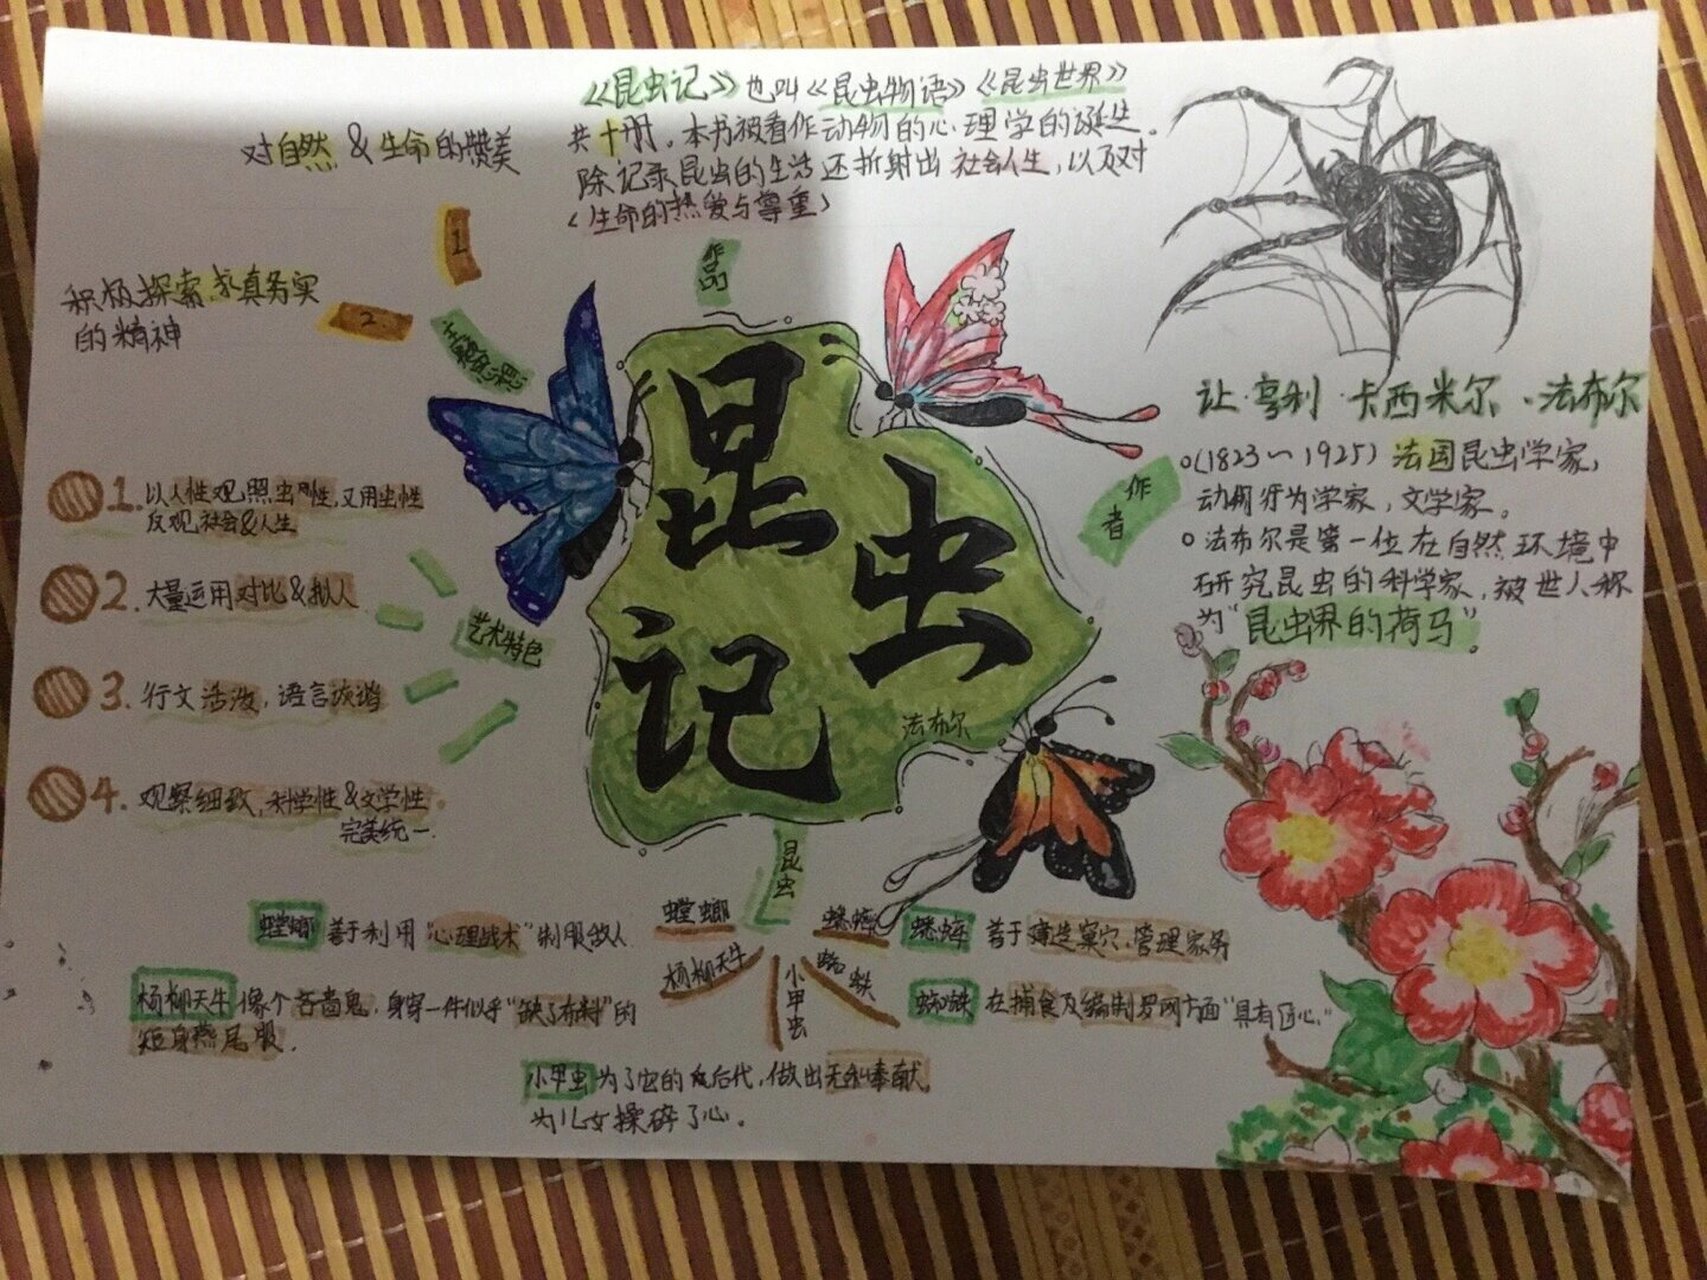 《昆虫记》也叫《昆虫物语》《昆虫世界》
共十册。本书被看作动物的心理学的诞生。
除记录昆虫的生活还折射出社会人生,以及对
<生命的热爱与尊重>
作品
对自然&生命的赞美
1
积极探索,求真务实
的精神
2
主要思想
昆虫记
法布尔
让·亨利 卡西米尔·法布尔
作者
(1823~1925) 法国昆虫学家,
动物行为学家,文学家。
法布尔是第一位在自然环境中
研究昆虫的科学家,被世人称
为"昆虫界的荷马"。
1.以人性观照虫性,又用虫性
反观社会&人生
2.大量运用对比&拟人
艺术特色
3.行文活泼,语言诙谐
4.观察细致,科学性&文学性
完美统一.
昆虫
螳螂
蟋蟀
杨柳天牛
小甲虫
蜘蛛
螳螂 善于利用"心理战术"制服敌人
蟋蟀 善于建造巢穴、管理家务
杨柳天牛像个吝啬鬼,身穿一件似乎"缺了布料"的
短身燕尾服.
蜘蛛 在捕食及编制罗网方面"具有匠心"
小甲虫为了它的后代,做出无私奉献,
为儿女操碎了心。